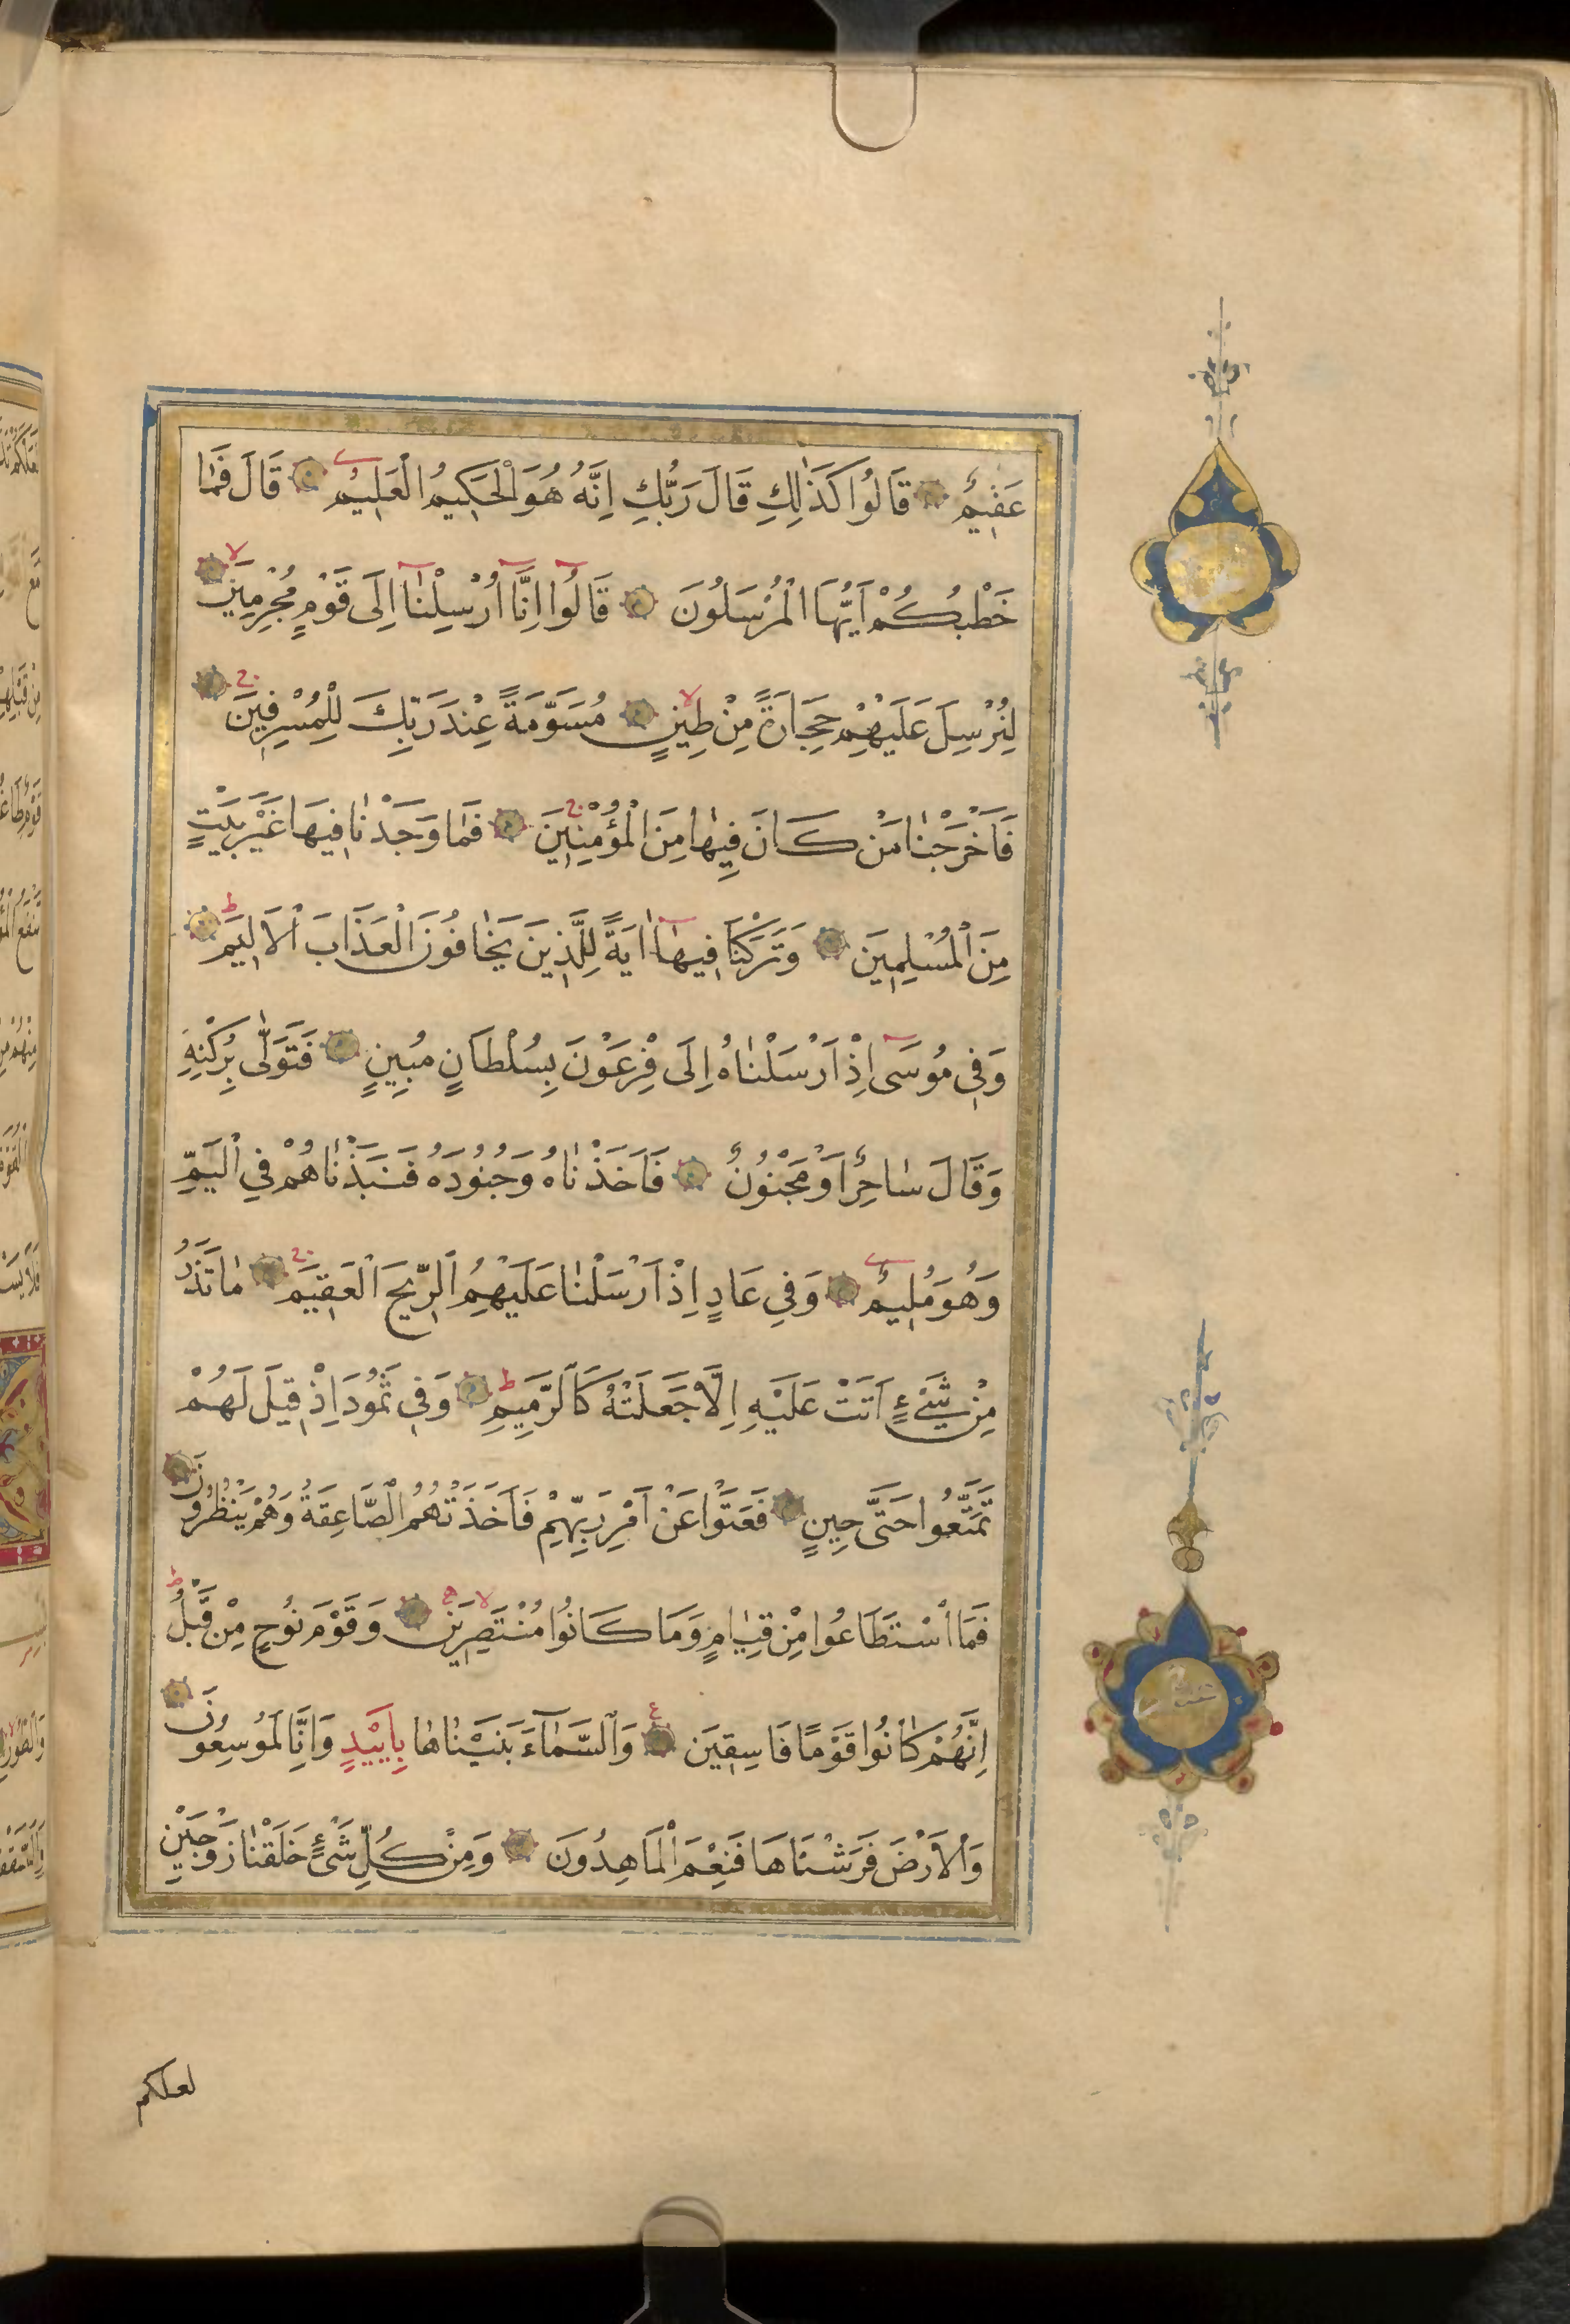 عَقِيمٌ قَالُوا كَذٰلِكِ قَالَ رَبُّكِ اِنَّهُ هُوَ الْحَكِيمُ الْعَلِيمُ قَالَ فَمَا
خَطْبُكُمْ اَيُّهَا الْمُرْسَلُونَ قَالُوا اِنَّا اُرْسِلْنَا اِلَى قَوْمٍ مُجْرِمِينَ
لِنُرْسِلَ عَلَيْهِمْ حِجَارَةً مِنْ طِينٍ مُسَوَّمَةً عِنْدَ رَبِّكَ لِلْمُسْرِفِينَ
فَاَخْرَجْنَا مَنْ كَانَ فِيهَا مِنَ الْمُؤْمِنِينَ فَمَا وَجَدْنَا فِيهَا غَيْرَ بَيْتٍ
مِنَ الْمُسْلِمِينَ وَتَرَكْنَا فِيهَا اٰيَةً لِلَّذِينَ يَخَافُونَ الْعَذَابَ الْاَلِيمَ
وَفِي مُوسَى اِذْ اَرْسَلْنَاهُ اِلَى فِرْعَوْنَ بِسُلْطَانٍ مُبِينٍ فَتَوَلّٰى بِرُكْنِهِ
وَقَالَ سَاحِرٌ اَوْ مَجْنُونٌ فَاَخَذْنَاهُ وَجُنُودَهُ فَنَبَذْنَاهُمْ فِي الْيَمِّ
وَهُوَ مُلِيمٌ وَفِي عَادٍ اِذْ اَرْسَلْنَا عَلَيْهِمُ الرِّيحَ الْعَقِيمَ مَا تَذَرُ
مِنْ شَيْءٍ اَتَتْ عَلَيْهِ اِلَّا جَعَلَتْهُ كَالرَّمِيمِ وَفِي ثَمُودَ اِذْ قِيلَ لَهُمْ
تَمَتَّعُوا حَتَّى حِينٍ فَعَتَوْا عَنْ اَمْرِ رَبِّهِمْ فَاَخَذَتْهُمُ الصَّاعِقَةُ وَهُمْ يَنْظُرُونَ
فَمَا اسْتَطَاعُوا مِنْ قِيَامٍ وَمَا كَانُوا مُنْتَصِرِينَ وَقَوْمَ نُوحٍ مِنْ قَبْلُ
اِنَّهُمْ كَانُوا قَوْمًا فَاسِقِينَ وَالسَّمَآءَ بَنَيْنَاهَا بِاَيْيدٍ وَاِنَّا لَمُوسِعُونَ
وَالْاَرْضَ فَرَشْنَاهَا فَنِعْمَ الْمَاهِدُونَ وَمِنْ كُلِّ شَيْءٍ خَلَقْنَا زَوْجَيْنِ
لعلكم